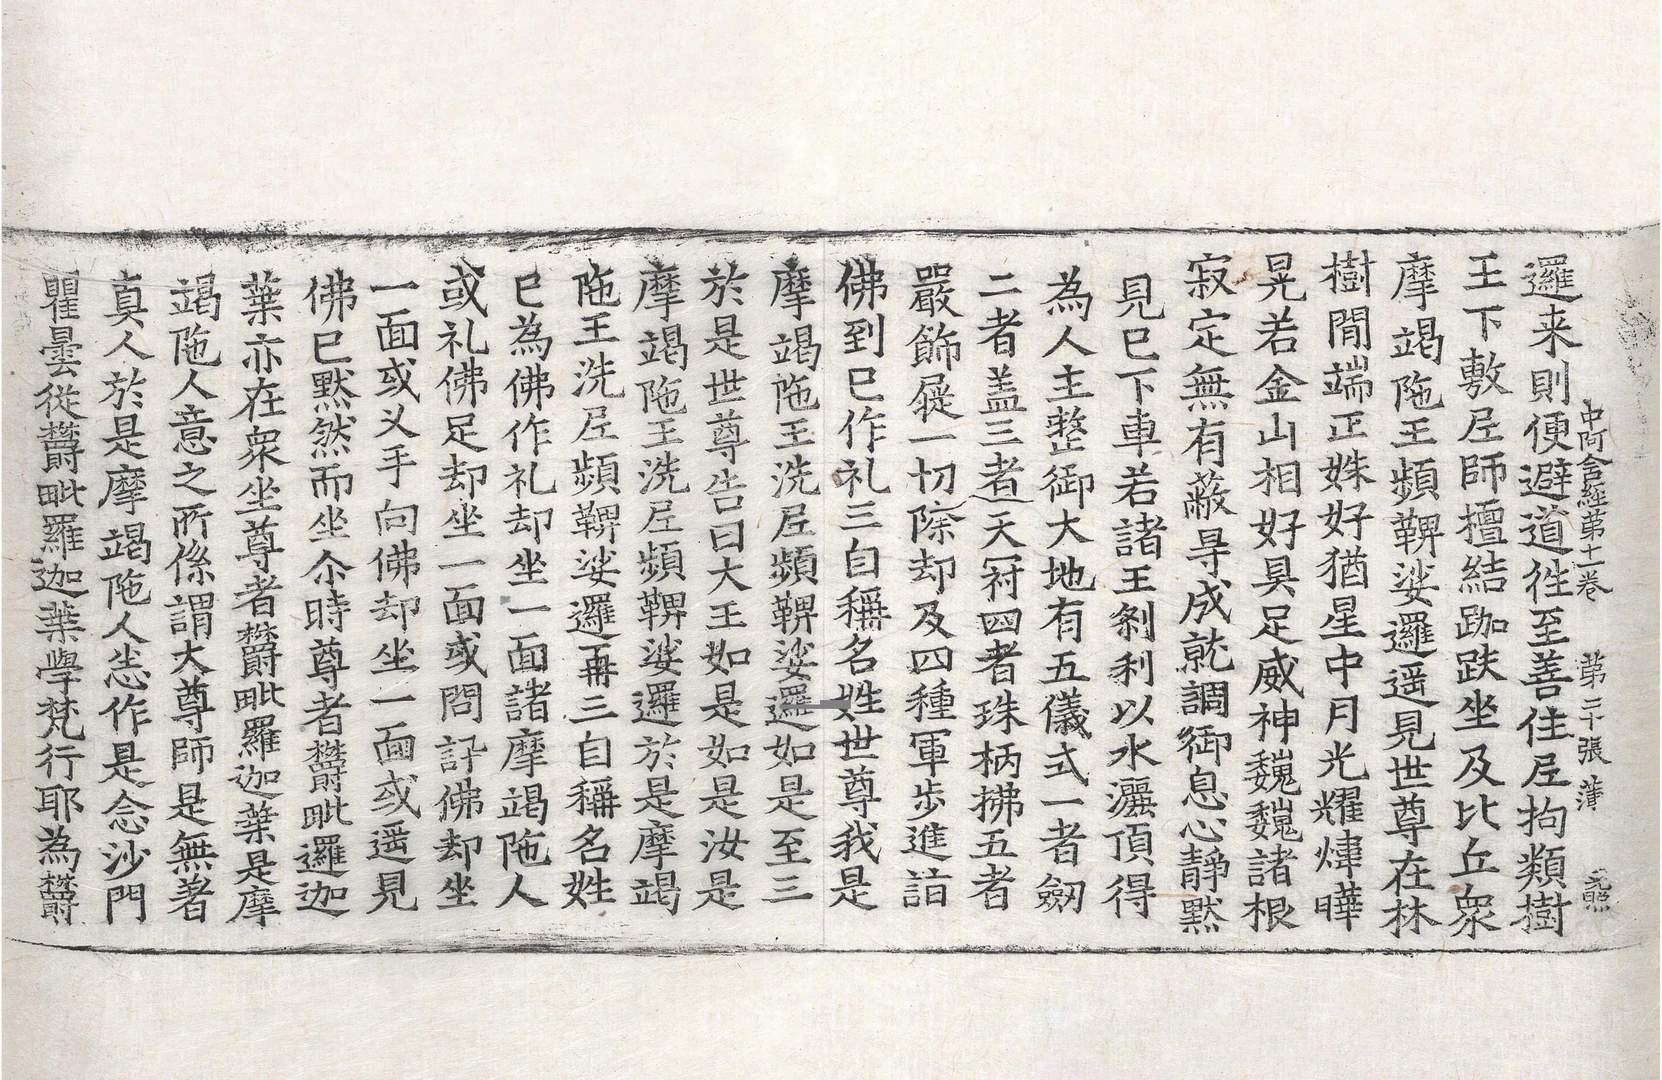 中阿含經第十一卷 第二十張 薄 元煕
邏来則便避道往至善住尼拘類樹
王下敷尼師檀結跏趺坐及比丘衆
摩竭陁王頻鞞娑邏遥見世尊在林
樹間端正姝好猶星中月光耀煒曄
晃若金山相好具足威神巍巍諸根
寂定無有蔽㝵成就調御息心靜默
見已下車若諸王剎利以水灑頂得
為人主整御大地有五儀式一者劒
二者盖三者天冠四者珠柄拂五者
嚴飾屣一切除却及四種軍步進詣
佛到已作礼三自稱名姓世尊我是
摩竭陁王洗尼頻鞞娑邏如是至三
於是世尊告曰大王如是如是汝是
摩竭陁王洗尼頻鞞娑邏於是摩竭
陁王洗尼頻鞞娑邏再三自稱名姓
已為佛作礼却坐一面諸摩竭陁人
或礼佛足却坐一面或問訊佛却坐
一面或叉手向佛却坐一面或遥見
佛已默然而坐尒時尊者欝毗邏迦
葉亦在衆坐尊者欝毗羅迦葉是摩
竭陁人意之所係謂大尊師是無著
真人於是摩竭陁人悉作是念沙門
瞿曇從欝毗羅迦葉學梵行耶為欝